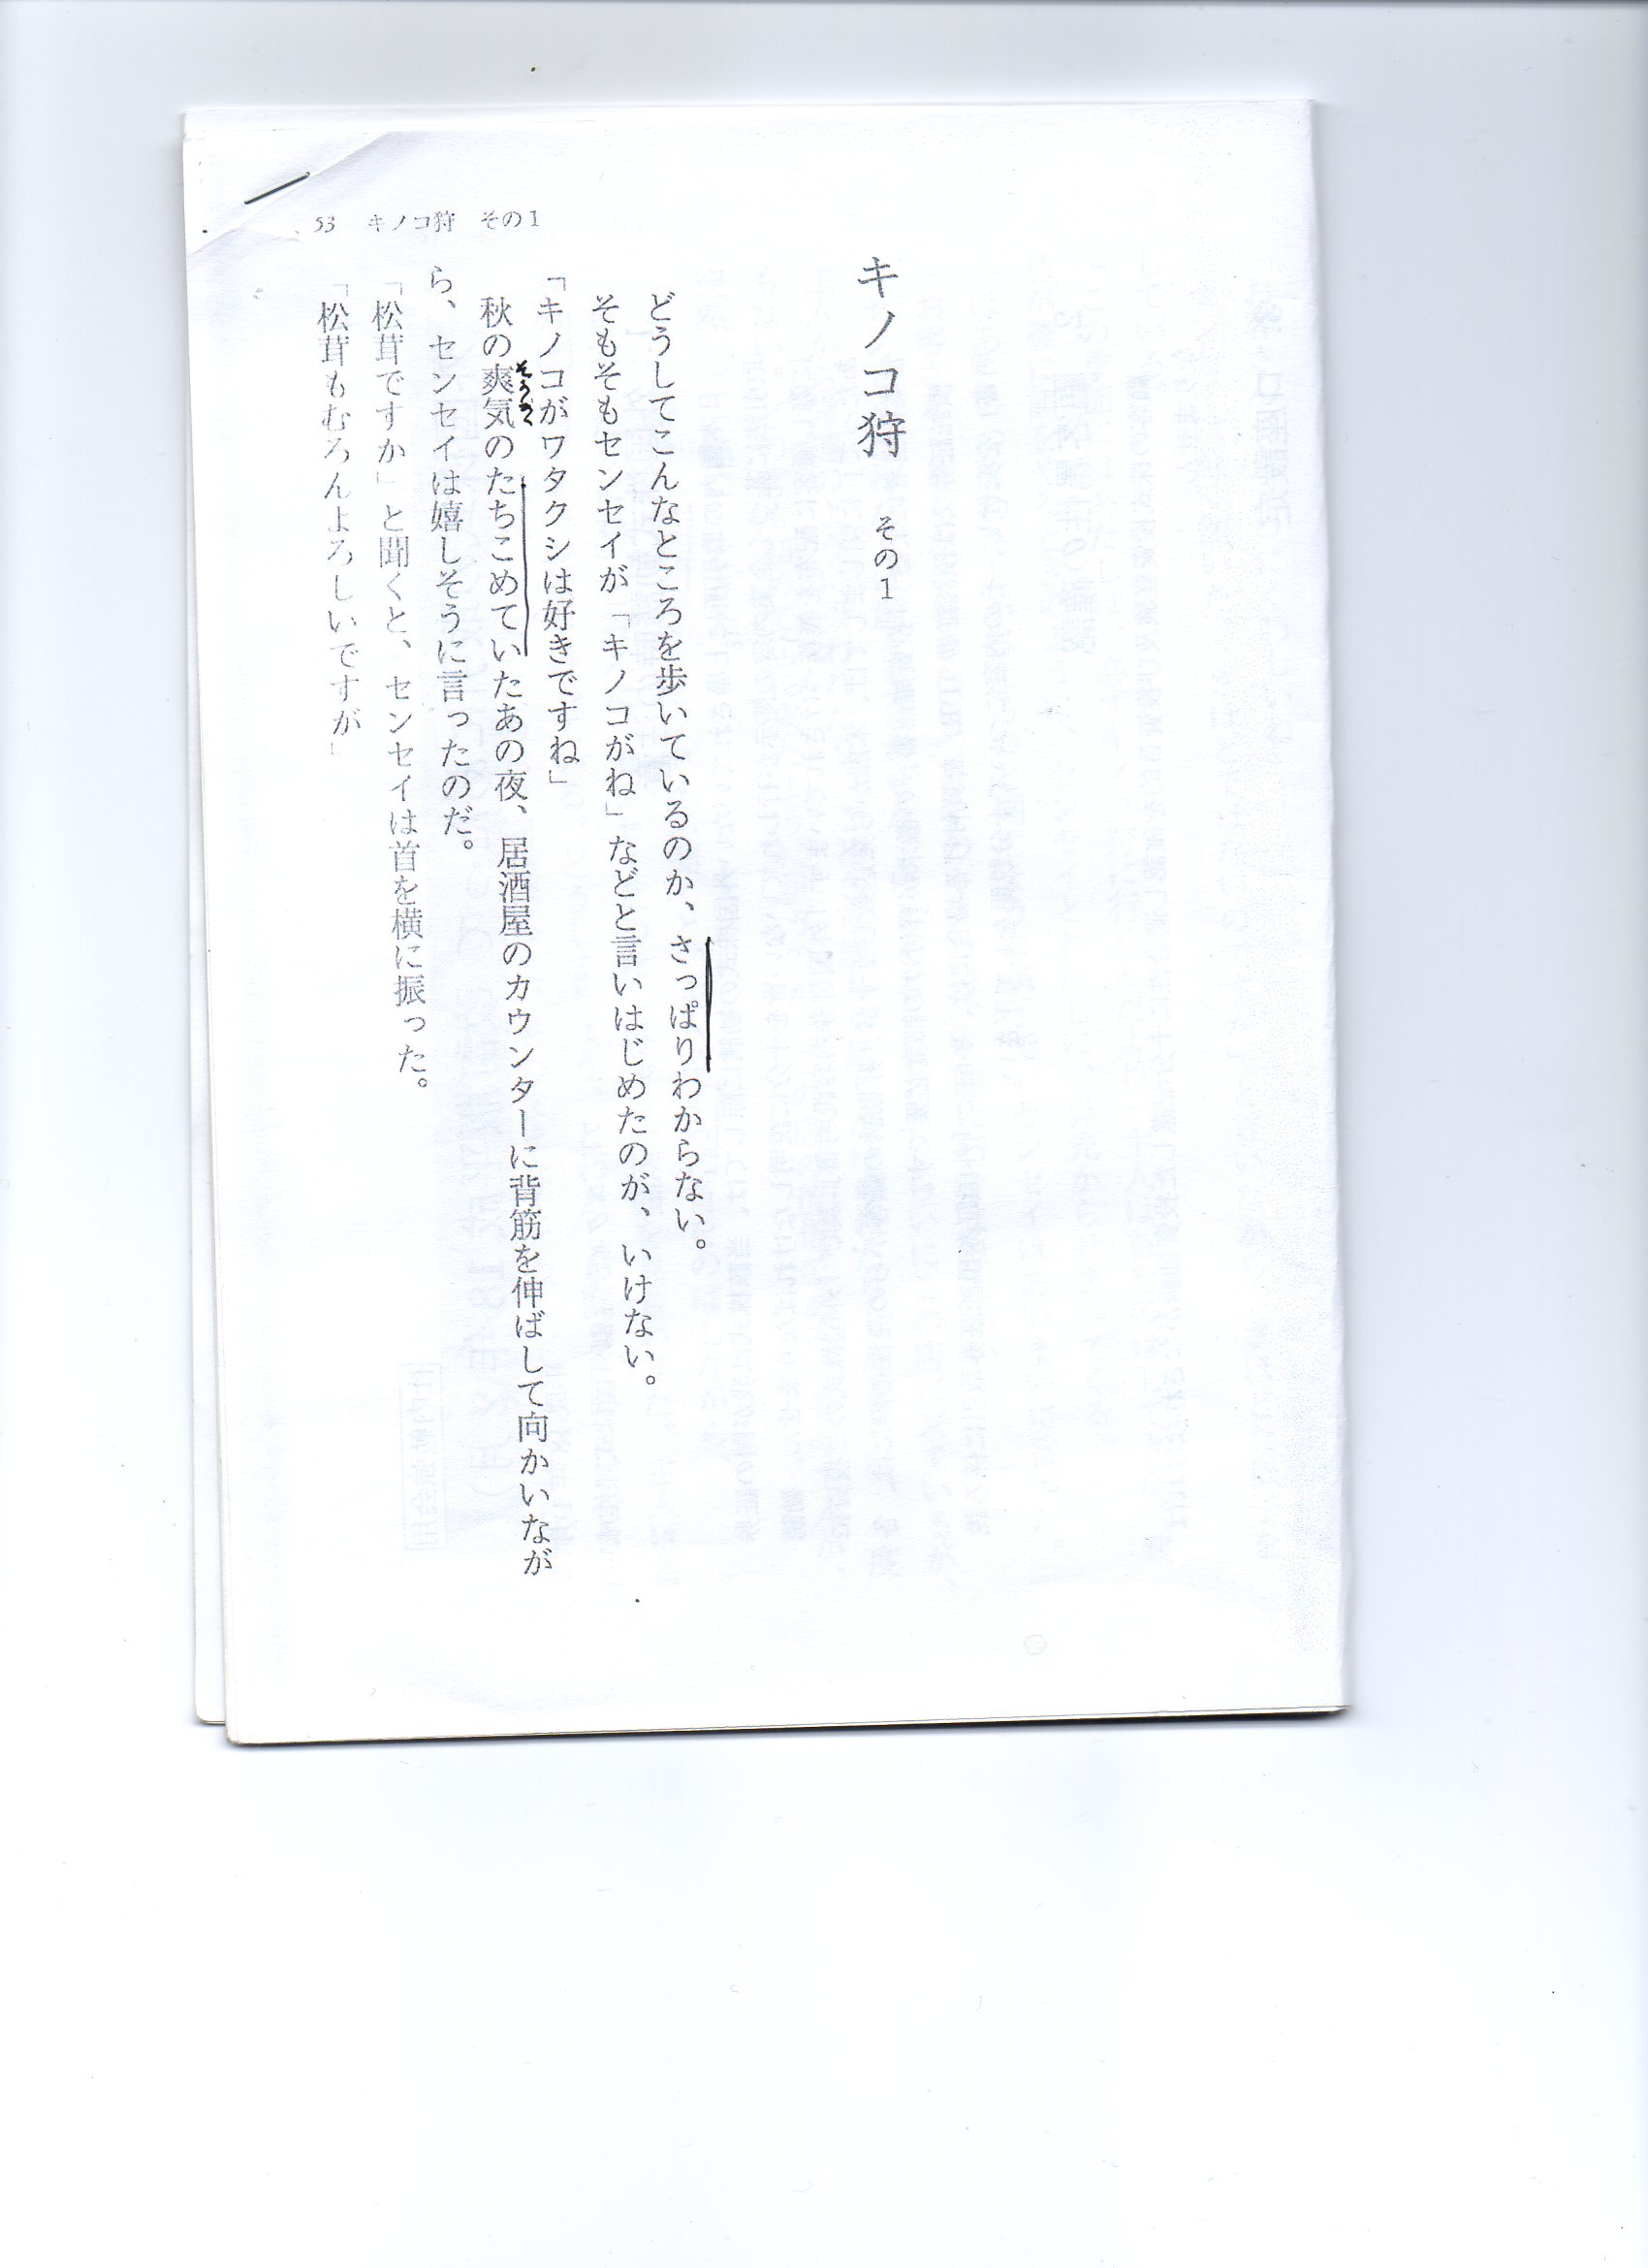 53 キノコ狩 その1
キノコ狩 その1
どうしてこんなところを歩いているのか、さっぱりわからない。
そもそもセンセイが「キノコがね」などと言いはじめたのが、いけない。
「キノコがワタクシは好きですね」
秋の爽気のたちこめていたあの夜、居酒屋のカウンターに背筋を伸ばして向かいなが
ら、センセイは嬉しそうに言ったのだ。
「松茸ですか」と聞くと、センセイは首を横に振った。
「松茸もむろんよろしいですが」